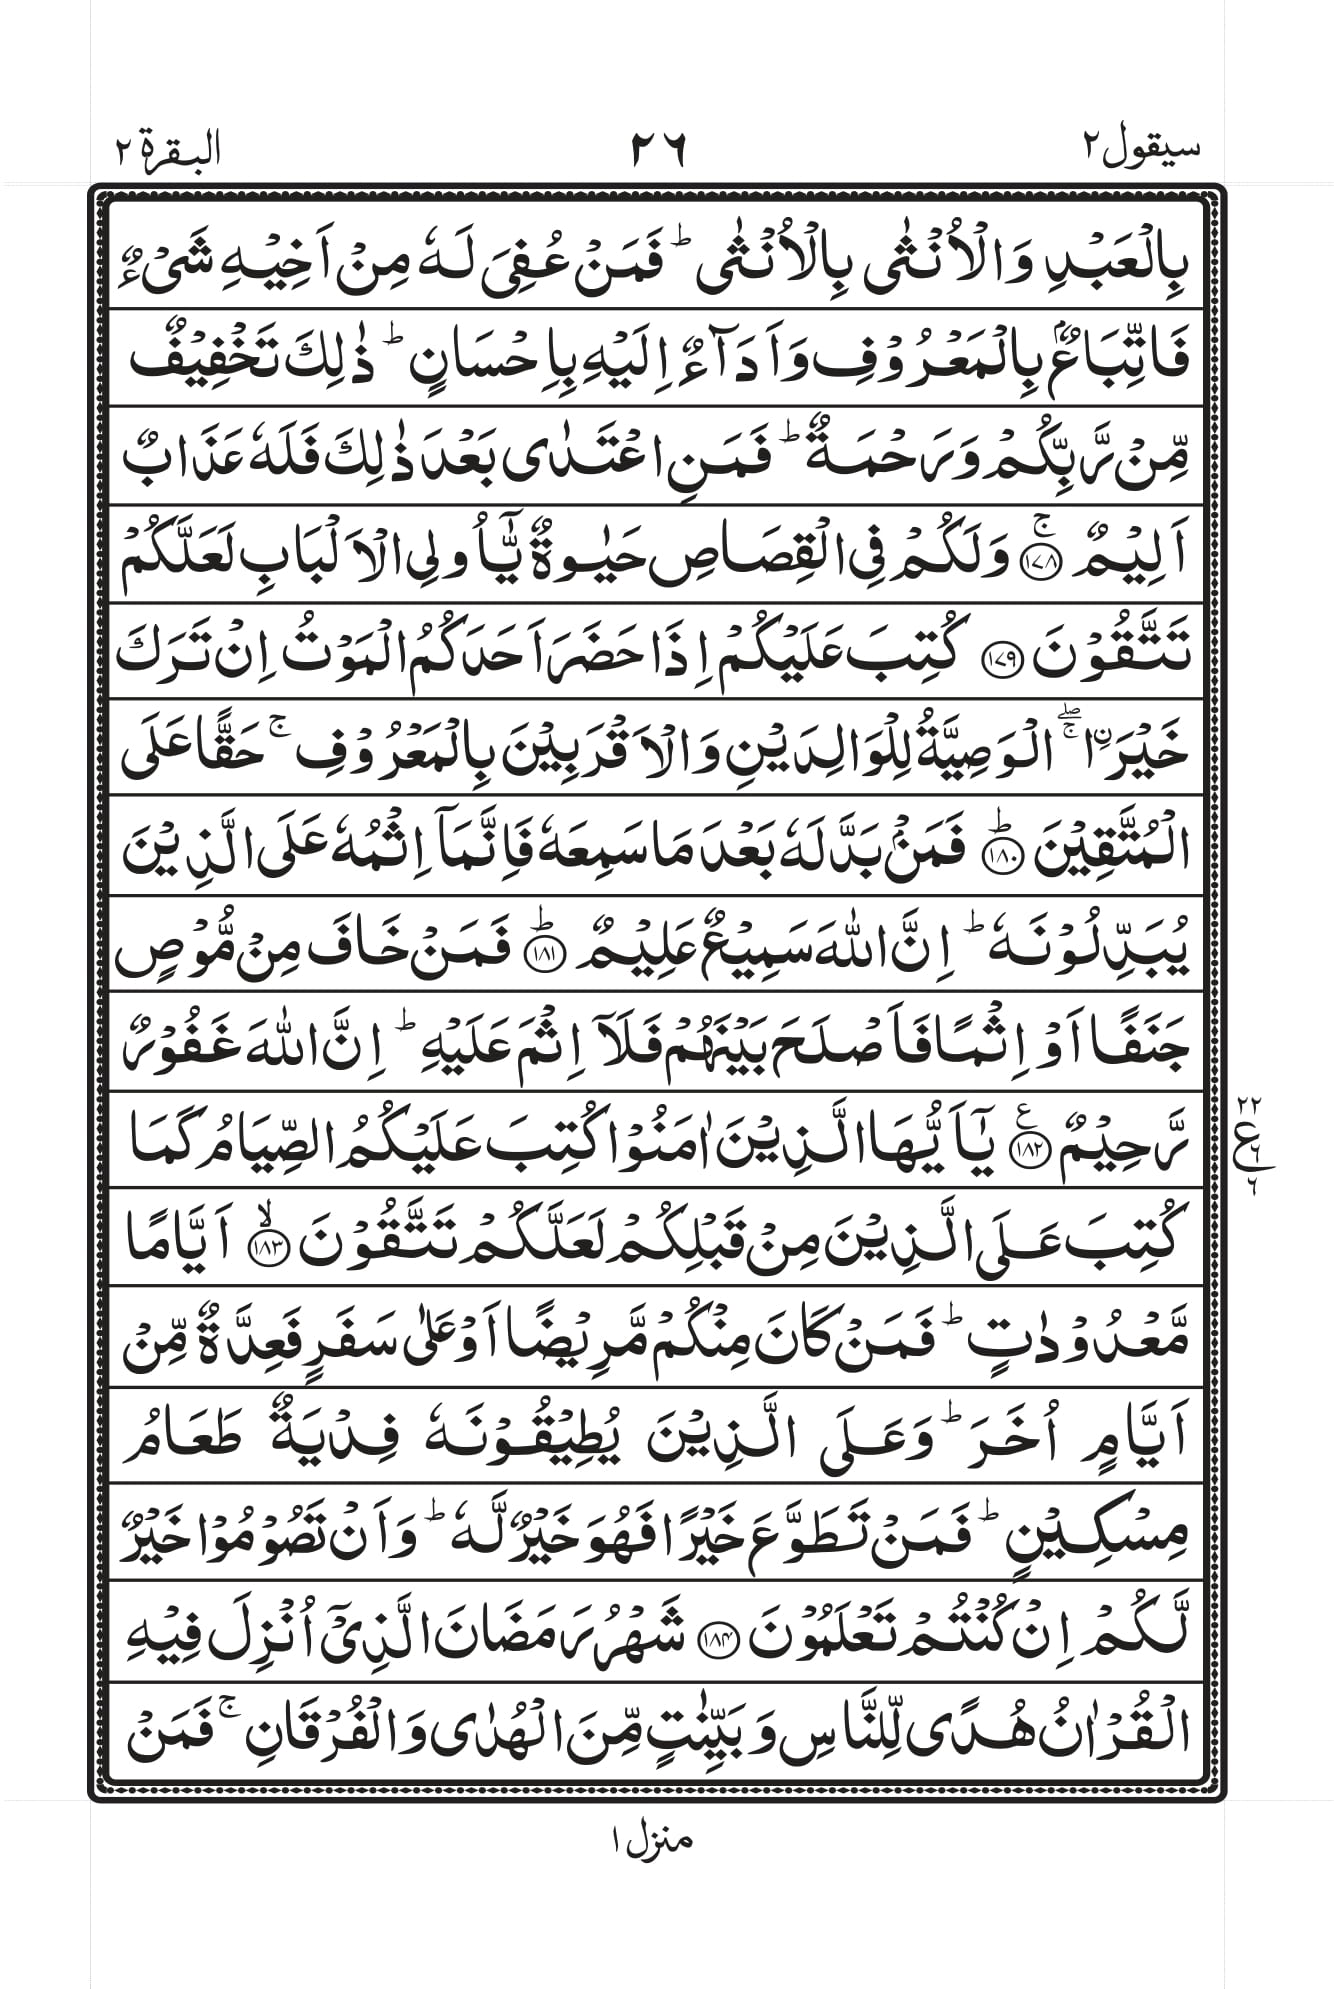 سيقول ٢ ٢٦ البقرة ٢
بِالْعَبْدِ وَالْاُنْثٰى بِالْاُنْثٰى ؕ فَمَنْ عُفِىَ لَهٗ مِنْ اَخِيْهِ شَىْءٌ
فَاتِّبَاعٌۢ بِالْمَعْرُوْفِ وَاَدَآءٌ اِلَيْهِ بِاِحْسَانٍ ؕ ذٰلِكَ تَخْفِيْفٌ
مِّنْ رَّبِّكُمْ وَرَحْمَةٌ ؕ فَمَنِ اعْتَدٰى بَعْدَ ذٰلِكَ فَلَهٗ عَذَابٌ
اَلِيْمٌ ۚ‏﴿۱۷۸﴾ وَلَكُمْ فِى الْقِصَاصِ حَيٰوةٌ يّٰٓاُولِى الْاَلْبَابِ لَعَلَّكُمْ
تَتَّقُوْنَ ﴿۱۷۹﴾ كُتِبَ عَلَيْكُمْ اِذَا حَضَرَ اَحَدَكُمُ الْمَوْتُ اِنْ تَرَكَ
خَيْرَاۨ ۖۚ الْوَصِيَّةُ لِلْوَالِدَيْنِ وَالْاَقْرَبِيْنَ بِالْمَعْرُوْفِ ۚ حَقًّا عَلَى
الْمُتَّقِيْنَ ؕ﴿۱۸۰﴾ فَمَنْۢ بَدَّلَهٗ بَعْدَ مَا سَمِعَهٗ فَاِنَّمَآ اِثْمُهٗ عَلَى الَّذِيْنَ
يُبَدِّلُوْنَهٗ ؕ اِنَّ اللّٰهَ سَمِيْعٌ عَلِيْمٌ ؕ﴿۱۸۱﴾ فَمَنْ خَافَ مِنْ مُّوْصٍ
جَنَفًا اَوْ اِثْمًا فَاَصْلَحَ بَيْنَهُمْ فَلَآ اِثْمَ عَلَيْهِ ؕ اِنَّ اللّٰهَ غَفُوْرٌ
رَّحِيْمٌ ﴿۱۸۲﴾ ع يٰٓاَيُّهَا الَّذِيْنَ اٰمَنُوْا كُتِبَ عَلَيْكُمُ الصِّيَامُ كَمَا
٢٢ ع ٦ ٦
كُتِبَ عَلَى الَّذِيْنَ مِنْ قَبْلِكُمْ لَعَلَّكُمْ تَتَّقُوْنَ ۙ﴿۱۸۳﴾ اَيَّامًا
مَّعْدُوْدٰتٍ ؕ فَمَنْ كَانَ مِنْكُمْ مَّرِيْضًا اَوْ عَلٰى سَفَرٍ فَعِدَّةٌ مِّنْ
اَيَّامٍ اُخَرَ ؕ وَعَلَى الَّذِيْنَ يُطِيْقُوْنَهٗ فِدْيَةٌ طَعَامُ
مِسْكِيْنٍ ؕ فَمَنْ تَطَوَّعَ خَيْرًا فَهُوَ خَيْرٌ لَّهٗ ؕ وَاَنْ تَصُوْمُوْا خَيْرٌ
لَّكُمْ اِنْ كُنْتُمْ تَعْلَمُوْنَ ﴿۱۸۴﴾ شَهْرُ رَمَضَانَ الَّذِىْٓ اُنْزِلَ فِيْهِ
الْقُرْاٰنُ هُدًى لِّلنَّاسِ وَ بَيِّنٰتٍ مِّنَ الْهُدٰى وَالْفُرْقَانِ ۚ فَمَنْ
منزل ١